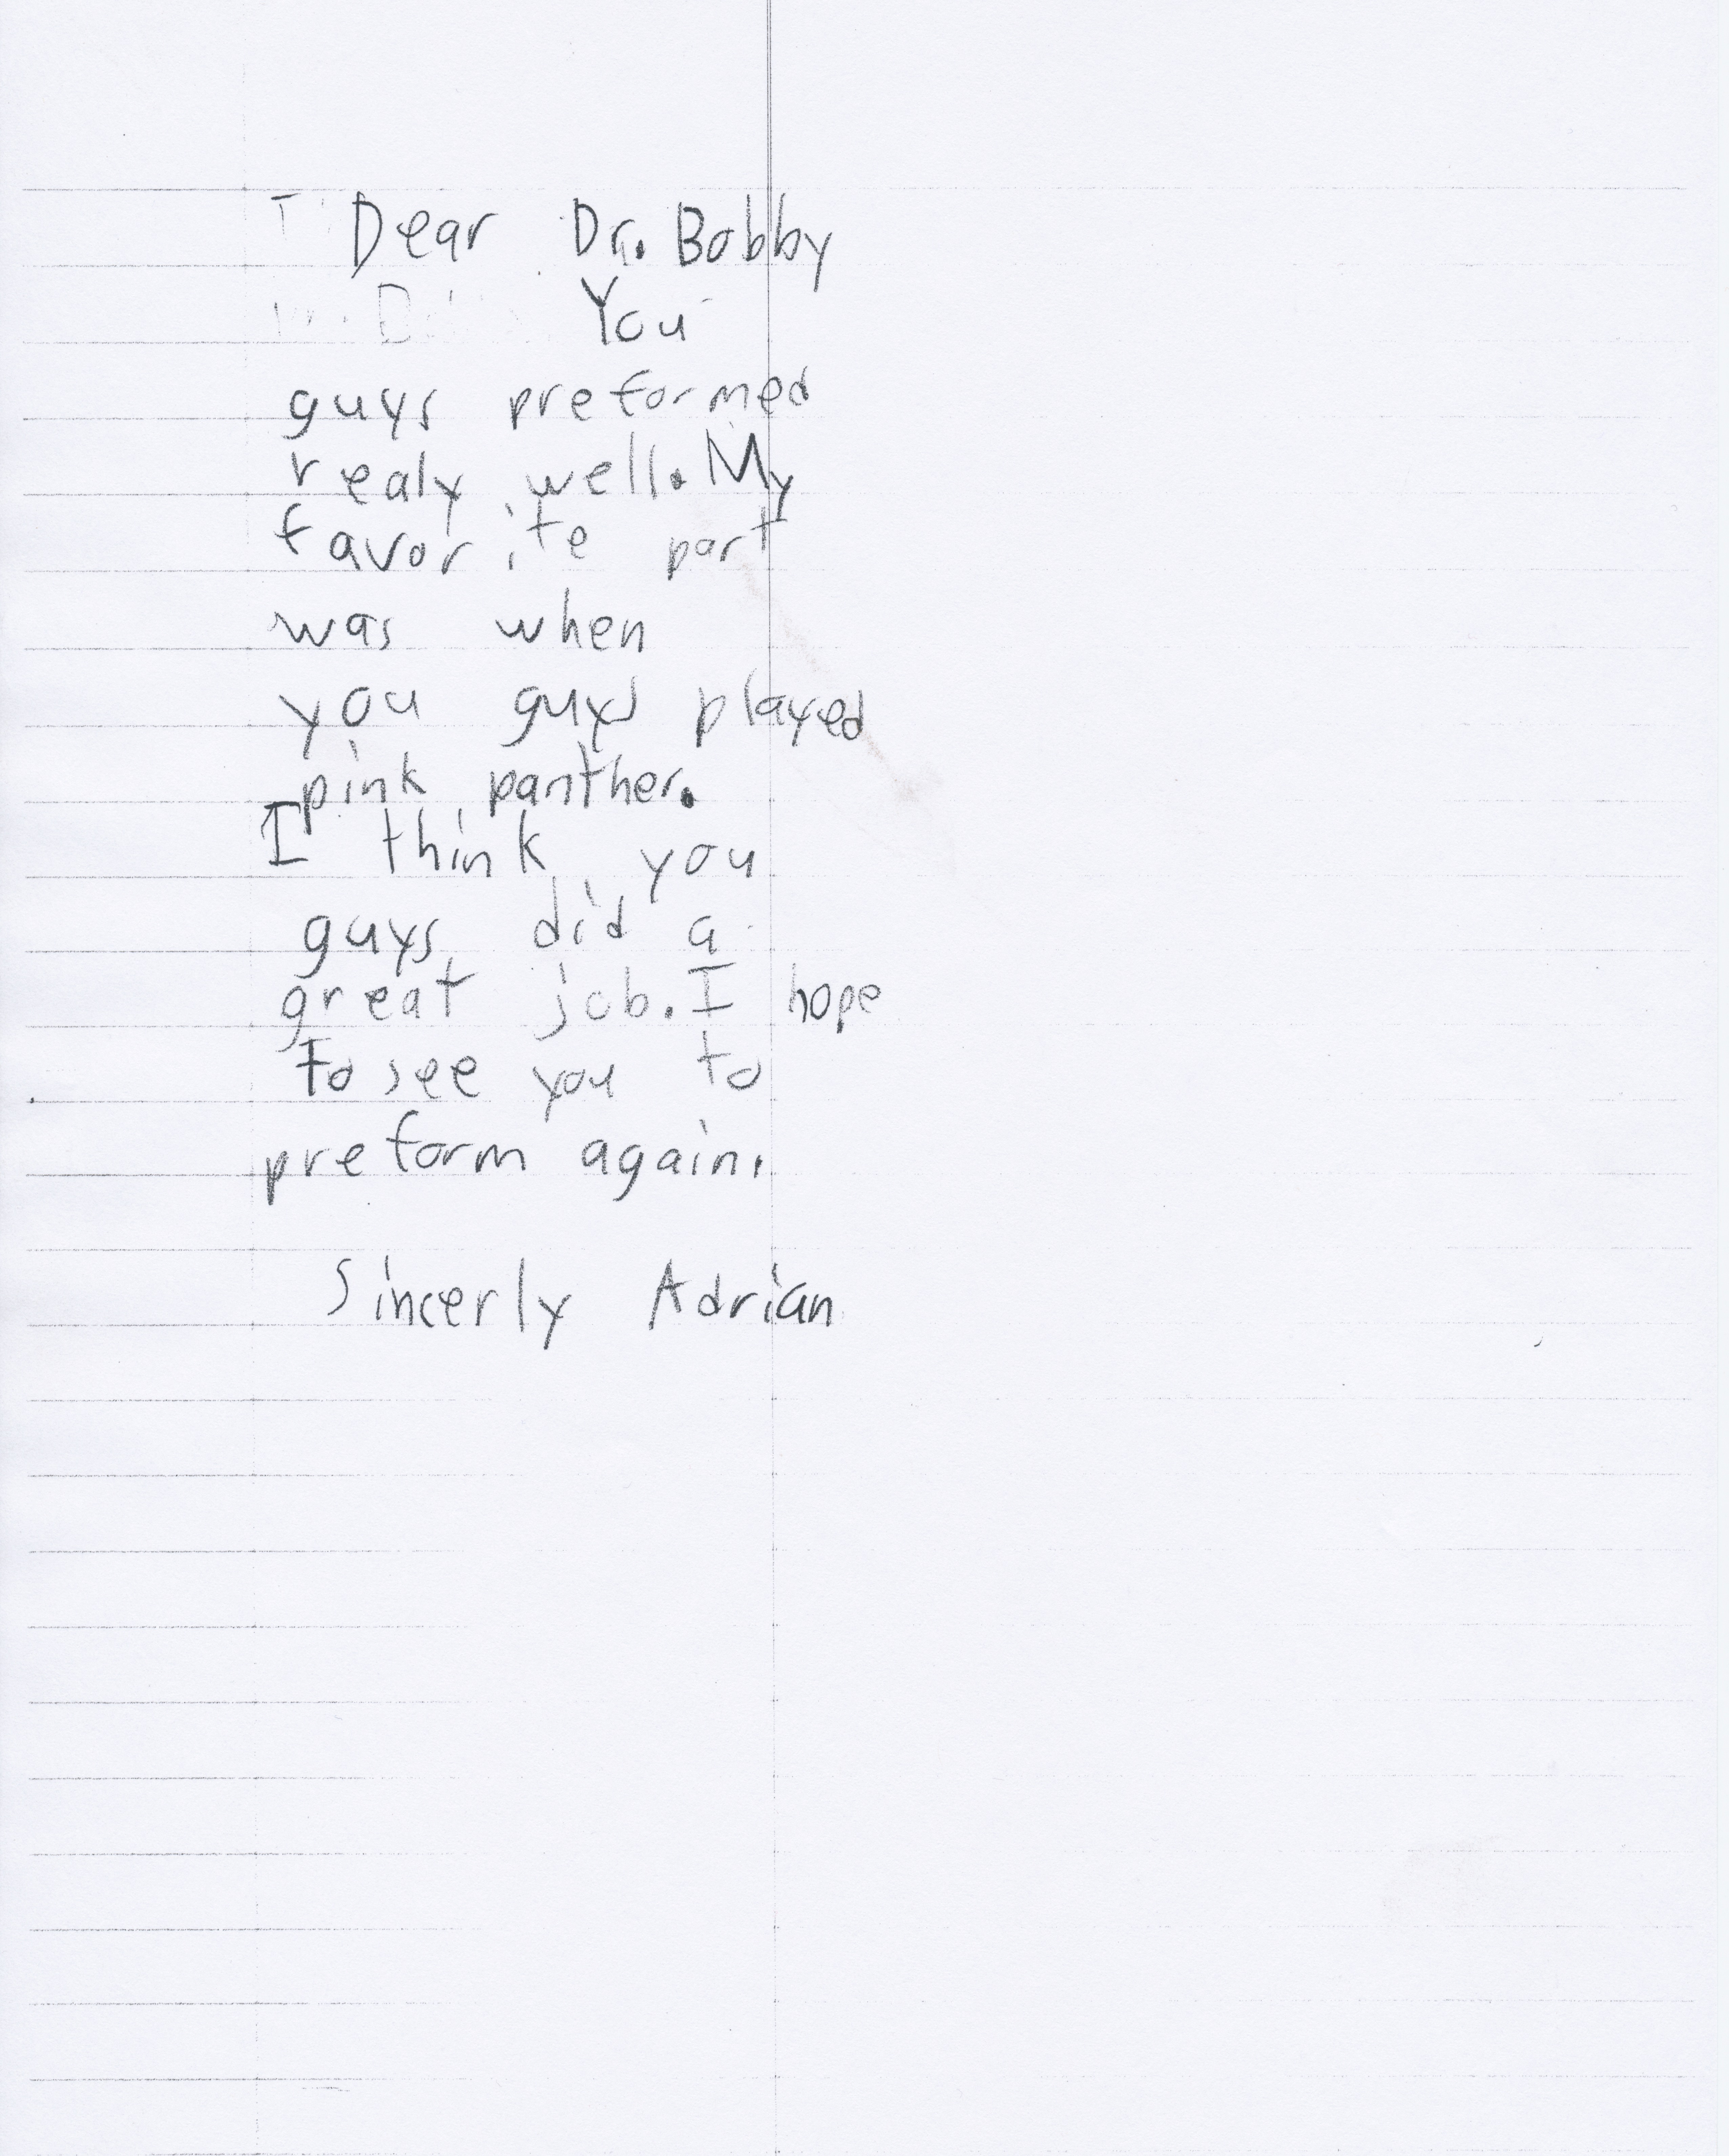 Dear Dr. Bobby
You
guys preformed
realy well. My
favorite part
was when
you guys played
pink panther.
I think you
guys did a
great job. I hope
to see you to
preform again.
Sincerly Adrian